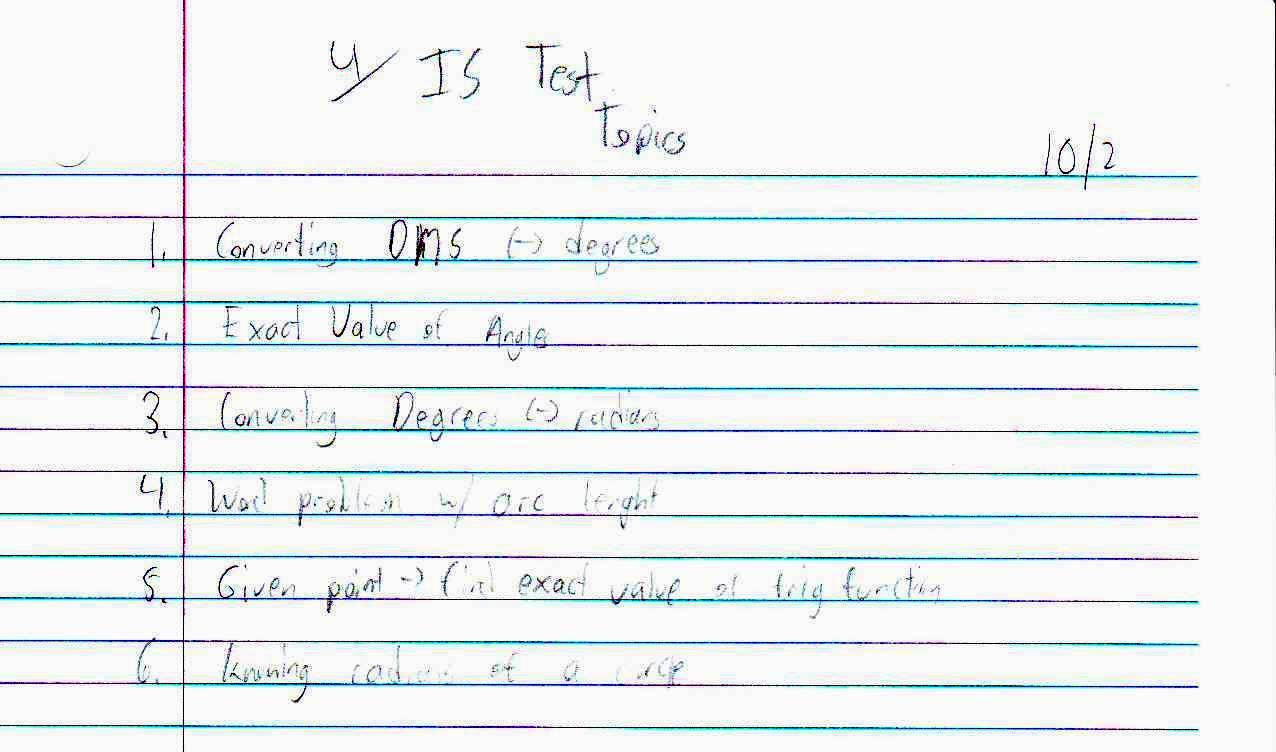 4/ IS Test
Topics
10/2
1. Converting DMS (-) degrees
2. Exact Value of Angles
3. Converting Degrees (-) radians
4. Word problem w/ arc lenght
5. Given point -> find exact value of trig function
6. Knowing radians of a circle